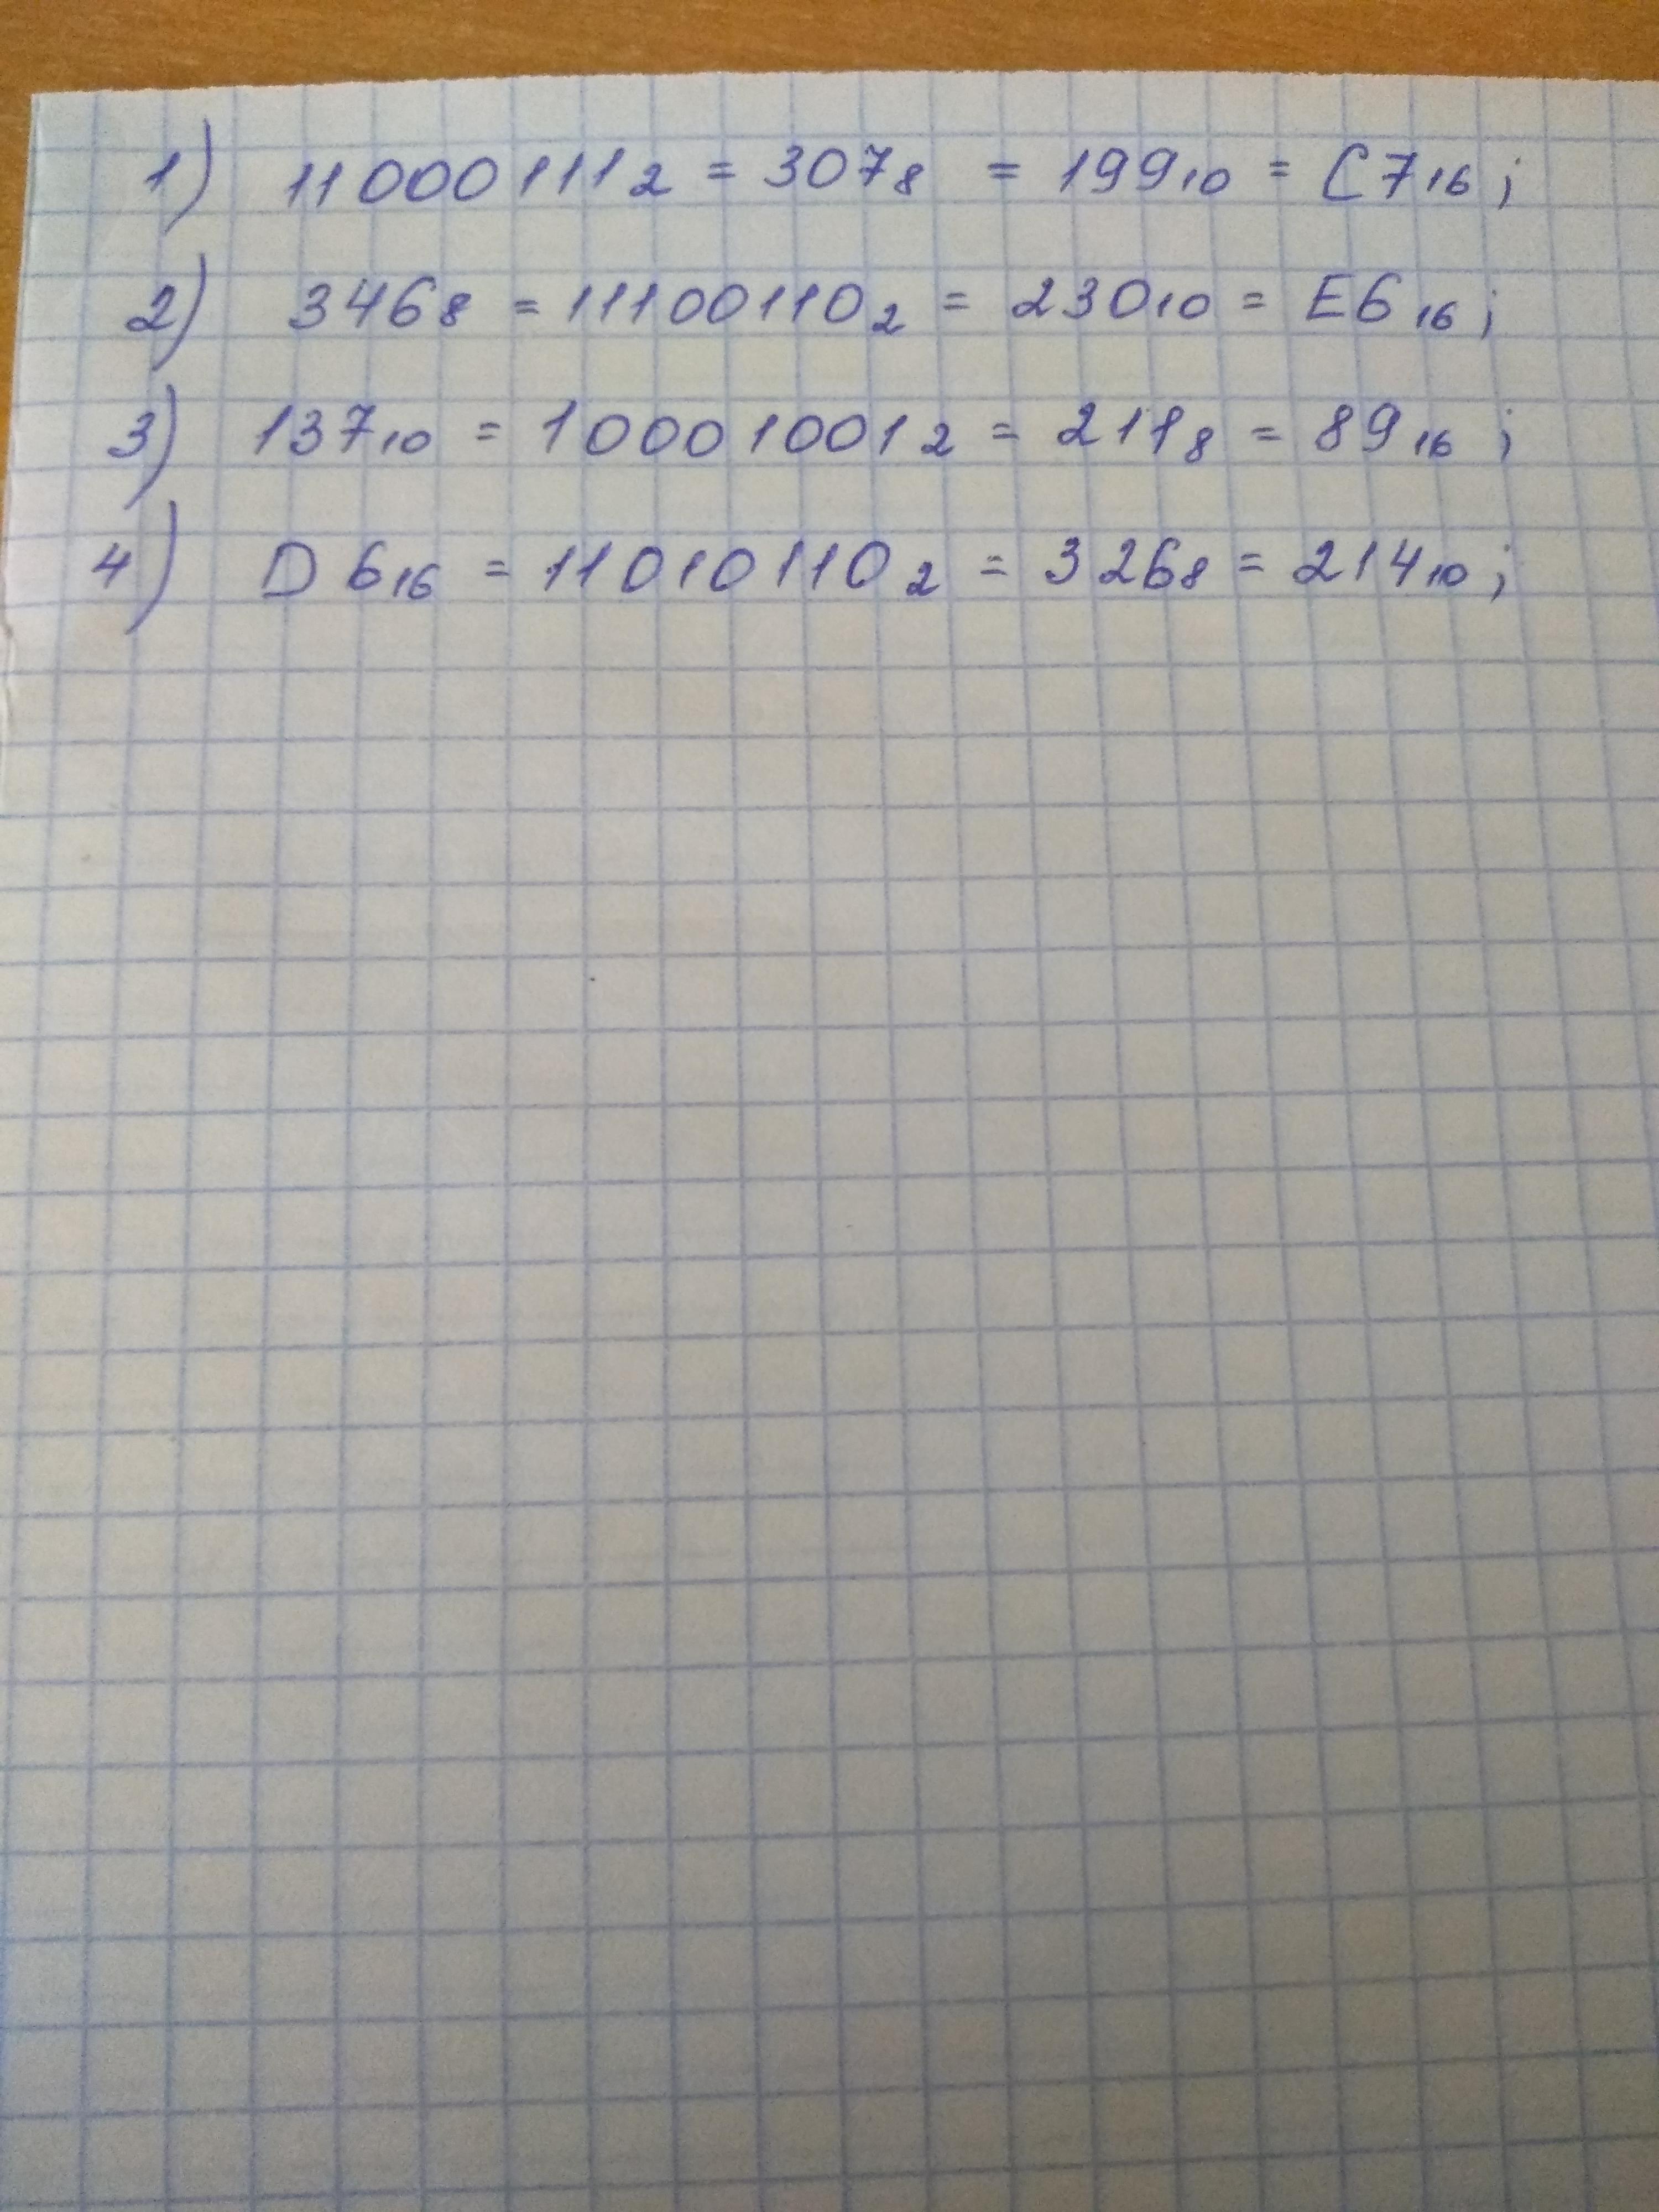 1) 11000111₂ = 307₈ = 199₁₀ = C7₁₆;
2) 346₈ = 11100110₂ = 230₁₀ = E6₁₆;
3) 137₁₀ = 10001001₂ = 211₈ = 89₁₆;
4) D6₁₆ = 11010110₂ = 326₈ = 214₁₀;